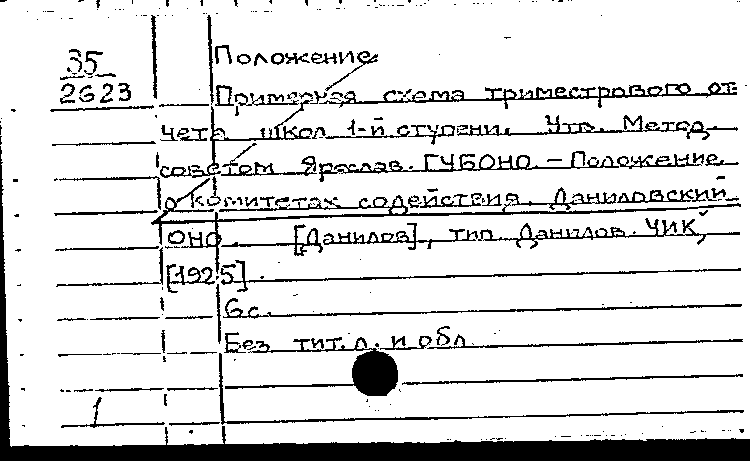 35
2623
Положение
Примерная схема триместрового от-
чета школ 1-й ступени. Утв. Метод.
советом Ярослав. ГУБОНО. – Положение
о комитетах содействия. Даниловский
ОНО. [Данилов], тип. Данилов. ЧИК,
[1925].
6 с.
Без тит. л. и обл
1